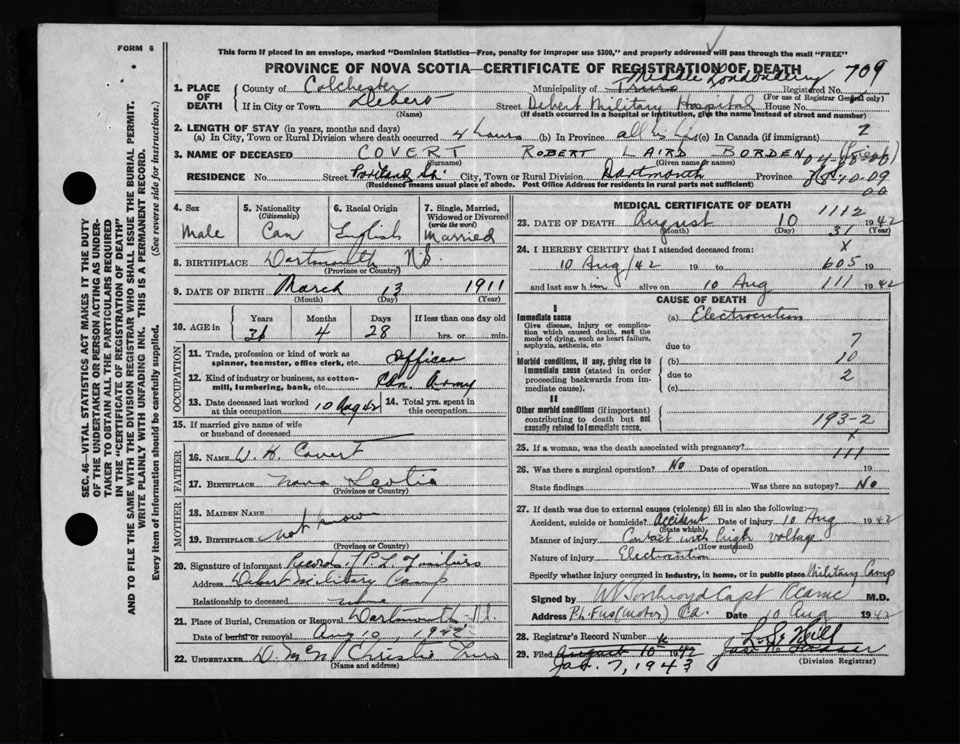 FORM 6
This form if placed in an envelope, marked "Dominion Statistics—Free, penalty for improper use $300," and properly addressed will pass through the mail "FREE"
PROVINCE OF NOVA SCOTIA—CERTIFICATE OF REGISTRATION OF DEATH
1. PLACE OF DEATH
County of Colchester Municipality of Truro Middle Londonderry Registered No. 709
(For use of Registrar General only)
If in City or Town Debert Street Debert Military Hospital House No.
(Name) (If death occurred in a hospital or institution, give the name instead of street and number)
2. LENGTH OF STAY (in years, months and days)
(a) In City, Town or Rural Division where death occurred 4 hours (b) In Province all his life (c) In Canada (if immigrant) 2
3. NAME OF DECEASED COVERT ROBERT LAIRD BORDEN
(Surname) (Given name or names)
RESIDENCE No. Street Portland St. City, Town or Rural Division Dartmouth Province N.S.
(Residence means usual place of abode. Post Office Address for residents in rural parts not sufficient)
4. Sex Male
5. Nationality (Citizenship) Can
6. Racial Origin English
7. Single, Married, Widowed or Divorced (write the word) Married
8. BIRTHPLACE Dartmouth N.S.
(Province or Country)
9. DATE OF BIRTH March 13 1911
(Month) (Day) (Year)
10. AGE in Years Months Days If less than one day old
31 4 28 hrs. or min.
OCCUPATION
11. Trade, profession or kind of work as spinner, teamster, office clerk, etc. Officer
12. Kind of industry or business, as cotton-mill, lumbering, bank, etc. Cdn. Army
13. Date deceased last worked at this occupation 10 Aug 42 14. Total yrs. spent in this occupation
15. If married give name of wife or husband of deceased
FATHER
16. NAME W. H. Covert
17. BIRTHPLACE Nova Scotia
(Province or Country)
MOTHER
18. MAIDEN NAME
19. BIRTHPLACE not known
(Province or Country)
20. Signature of informant Records
Address Debert Military Camp
Relationship to deceased none
21. Place of Burial, Cremation or Removal Dartmouth N.S.
Date of burial or removal Aug 10, 1942
22. UNDERTAKER D. McN Christie Truro
(Name and address)
MEDICAL CERTIFICATE OF DEATH
1112
23. DATE OF DEATH August 10 31 1942
(Month) (Day) (Year)
24. I HEREBY CERTIFY that I attended deceased from: x
10 Aug/42 19 to 605 19
and last saw him alive on 10 Aug 111 1942
CAUSE OF DEATH
I
Immediate cause (a) Electrocution
Give disease, injury or complication which caused death, not the mode of dying, such as heart failure, asphyxia, asthenia, etc.
due to 7
Morbid conditions, if any, giving rise to immediate cause (stated in order proceeding backwards from immediate cause).
(b) 10
due to 2
(c)
II
Other morbid conditions (if important) contributing to death but not causally related to immediate cause.
193-2
x
25. If a woman, was the death associated with pregnancy? 111
26. Was there a surgical operation? No Date of operation 19
State findings Was there an autopsy? No
27. If death was due to external causes (violence) fill in also the following:
Accident, suicide or homicide? Accident Date of injury 10 Aug 1942
(State which)
Manner of injury Contact with high voltage
(How sustained)
Nature of injury Electrocution
Specify whether injury occurred in industry, in home, or in public place Military Camp
Signed by Capt RCAMC M.D.
Address Date 10 Aug 1942
28. Registrar's Record Number
29. Filed August 10 1942
Jan. 7, 1943
(Division Registrar)
SEC. 46—VITAL STATISTICS ACT MAKES IT THE DUTY
OF THE UNDERTAKER OR PERSON ACTING AS UNDER-
TAKER TO OBTAIN ALL THE PARTICULARS REQUIRED
IN THE "CERTIFICATE OF REGISTRATION OF DEATH"
AND TO FILE THE SAME WITH THE DIVISION REGISTRAR WHO SHALL ISSUE THE BURIAL PERMIT.
WRITE PLAINLY WITH UNFADING INK. THIS IS A PERMANENT RECORD.
Every item of information should be carefully supplied. (See reverse side for instructions.)